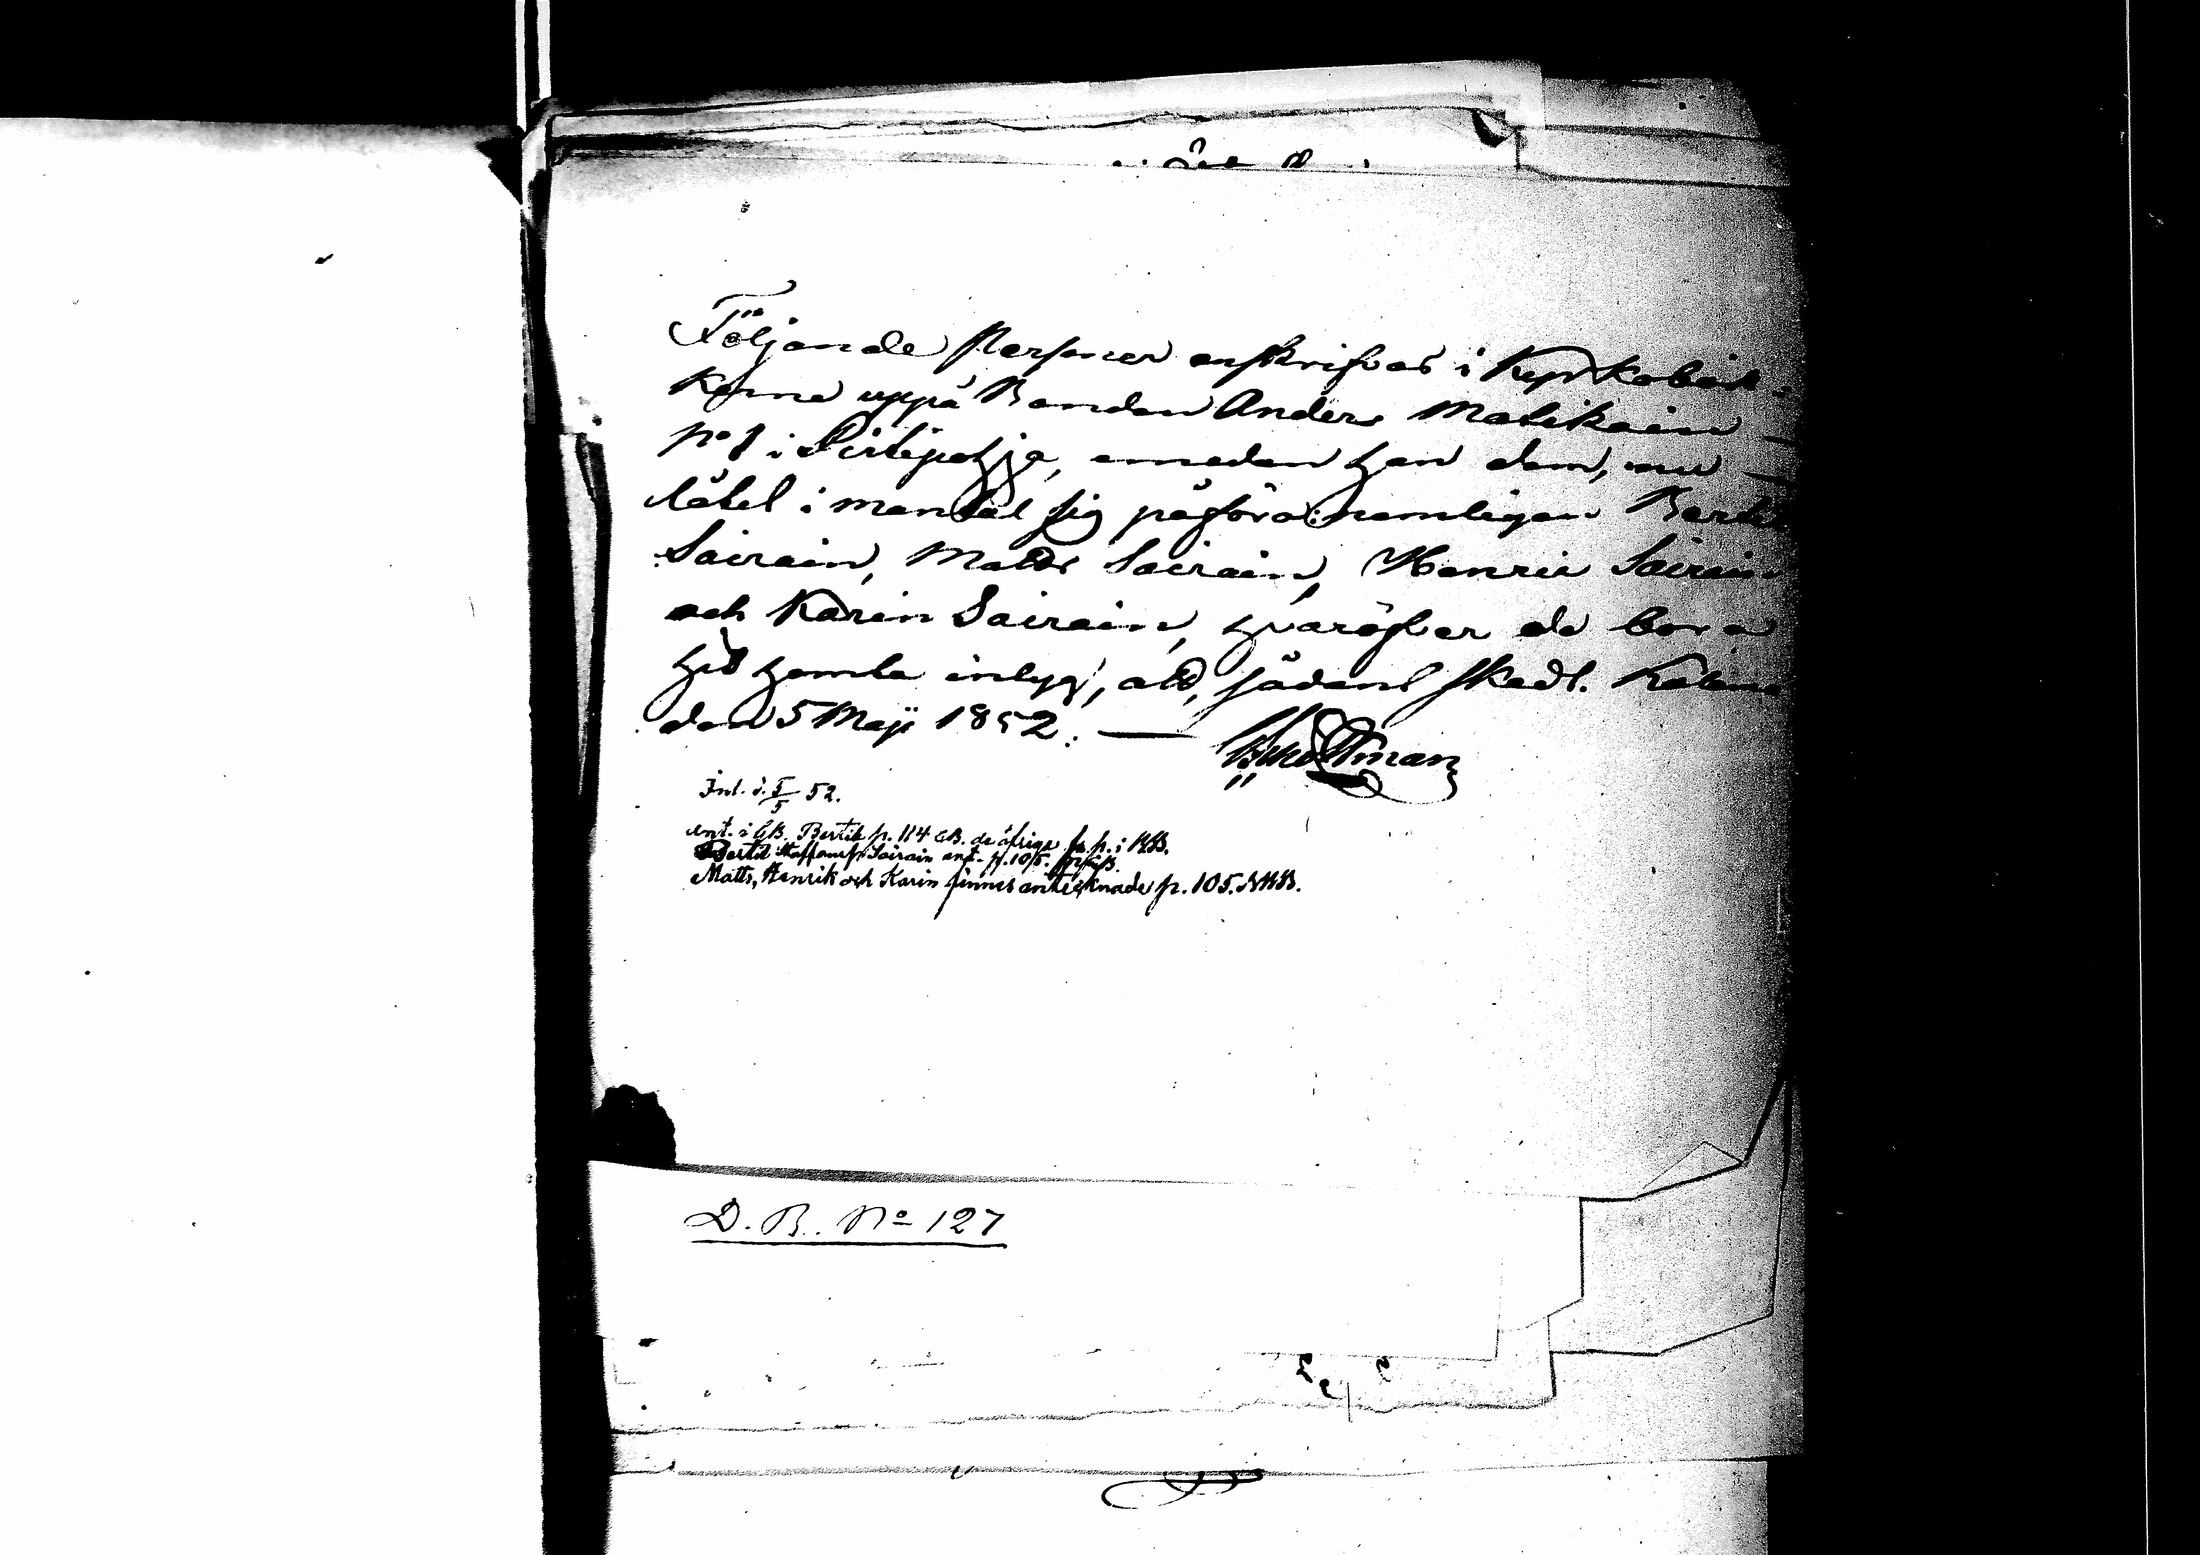 Följande personer enskrifvas i Kyrkoböc-
kerne uppå Bonden Anders Matikain
No 1 i Pirtipohja, emedan han dem, nu
låtel i mantal sig påföra: nemligen Bertil
Sairain, Matts Sairain, Henric Sairain
och Karin Sairain, hvaröfver de bora
hit hemta intyg, att, sådant skedt.
den 5 Maji 1852. —
Inl. d. 5/5 52.
Ant. i GB. Bertil p. 114 GB. de öfriga p. i KB.
Bertil Staffansr. Sairain ant. p. 105.
Matts, Henrik och Karin finnes antecknade p. 105. NKB.
D. B. No 127